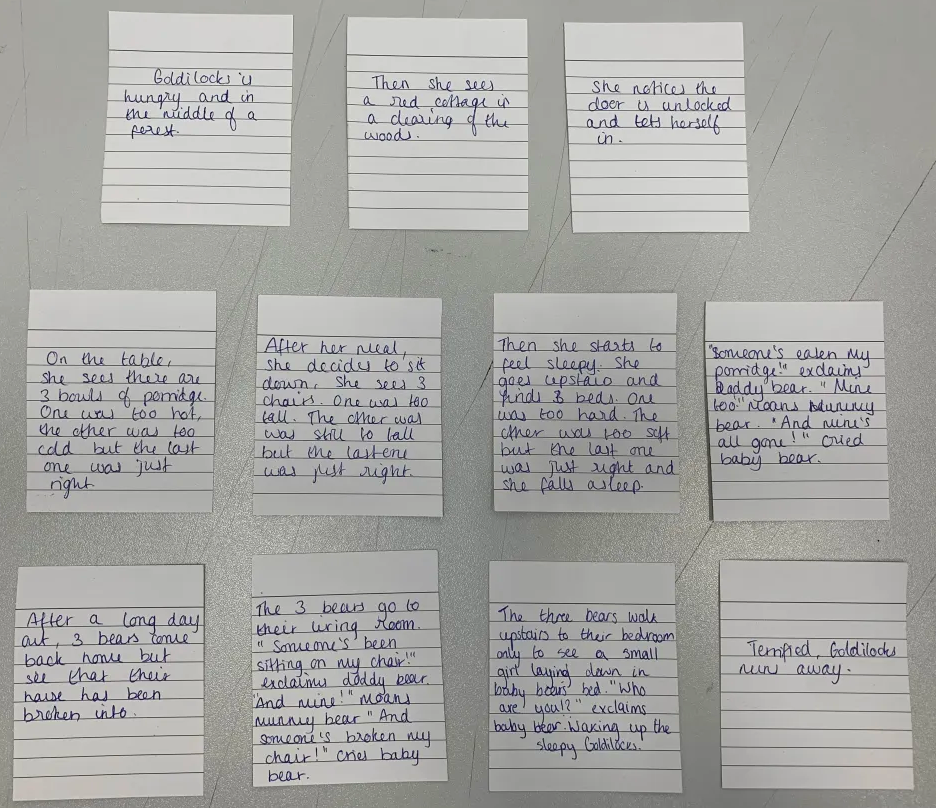 Goldilocks is
hungry and in
the middle of a
forest.
Then she sees
a red cottage in
a clearing of the
woods.
She notices the
door is unlocked
and lets herself
in.
On the table,
she sees there are
3 bowls of porridge.
One was too hot,
the other was too
cold but the last
one was just
right
After her meal,
she decides to sit
down. She sees 3
chairs. One was too
tall. The other was
was still to tall
but the last one
was just right.
Then she starts to
feel sleepy. She
goes upstairs and
finds 3 beds. One
was too hard. The
other was too soft
but the last one
was just right and
she falls asleep.
"Someone's eaten my
porridge!" exclaims
Daddy bear. "Mine
too!" Moans Mummy
bear. "And mine's
all gone!" Cried
baby bear.
After a long day
out, 3 bears come
back home but
see that their
house has been
broken into.
The 3 bears go to
their living room.
"Someone's been
sitting on my chair!"
exclaims daddy bear.
"And mine!" moans
mummy bear "And
someone's broken my
chair!" Cries baby
bear.
The three bears walk
upstairs to their bedroom
only to see a small
girl laying down in
baby bears' bed. "Who
are you!?" exclaims
baby bear. Waking up the
sleepy Goldilocks.
Terrified, Goldilocks
runs away.